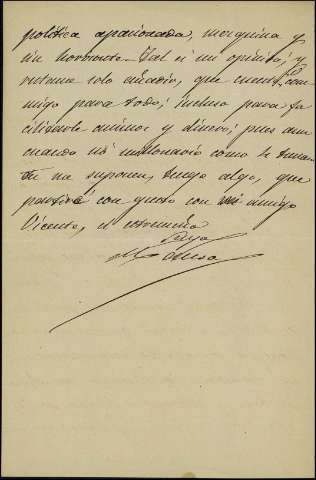 política apasionada, mezquina y
sin horizonte. Tal es mi opinión; y
réstame solo añadir, que cuentas con-
migo para todo; incluso para fa
cilitarte ánimos y dinero; pues aun
cuando no millonario como
tu me suponen, tengo algo, que
partiré con gusto con mi amigo
Vicente, el estremeño
Tuyo